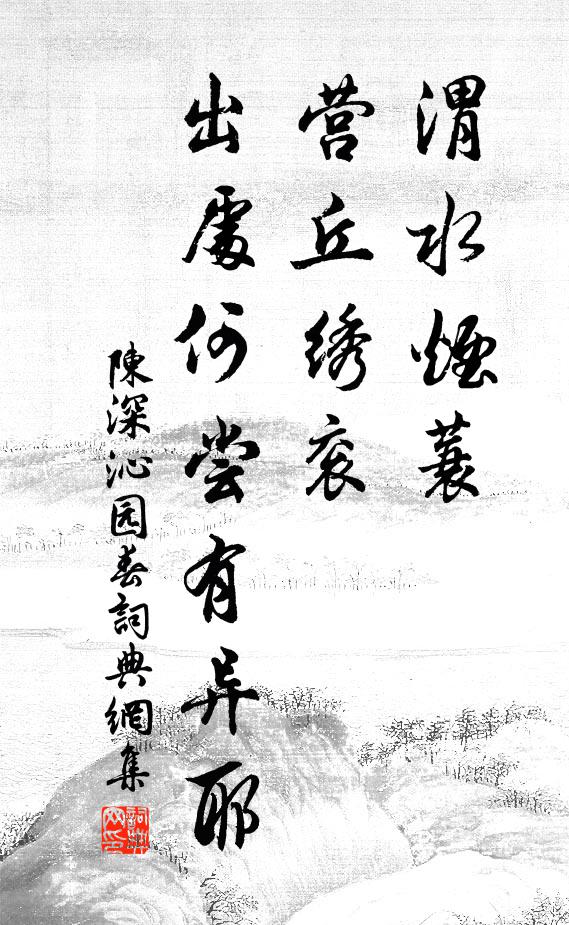 渭水烟蓑
营丘绣衮
出處何尝有异耶
陳深沁园春詞典網集